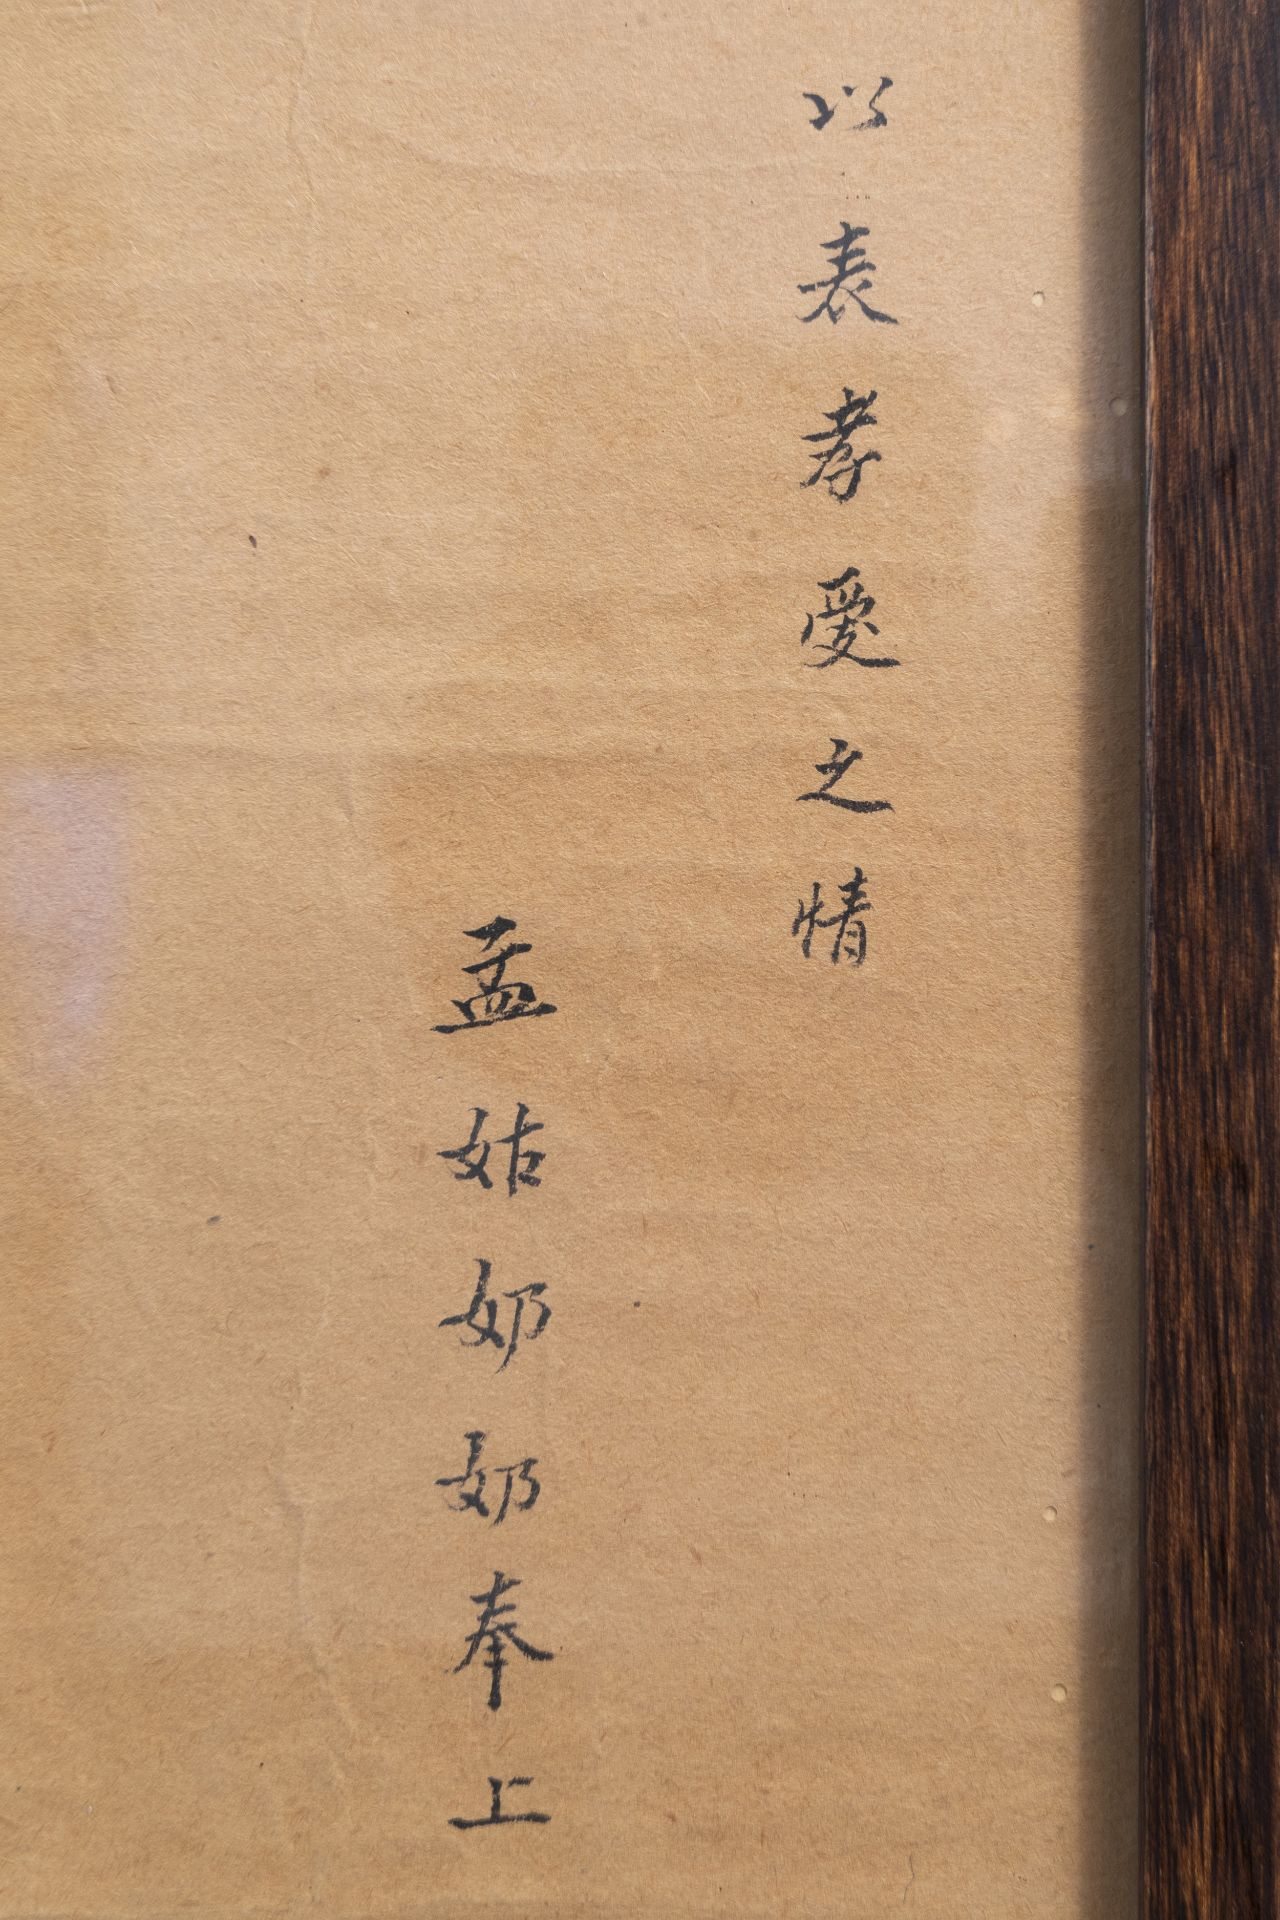 以表孝愛之情
孟姑奶奶奉上